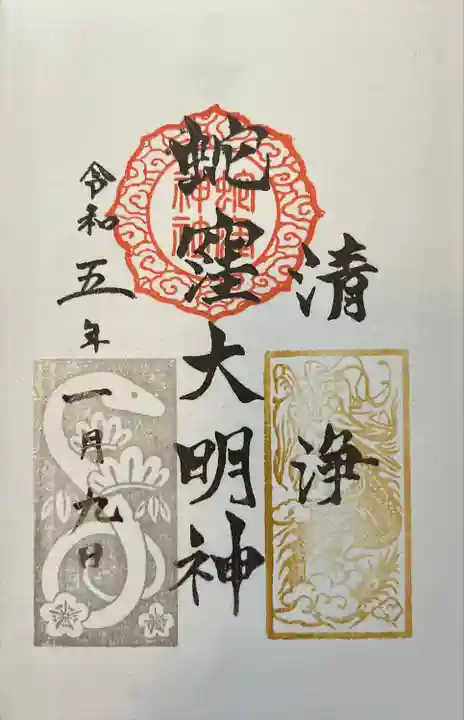 清浄
蛇窪大明神
令和五年一月九日
蛇窪神社